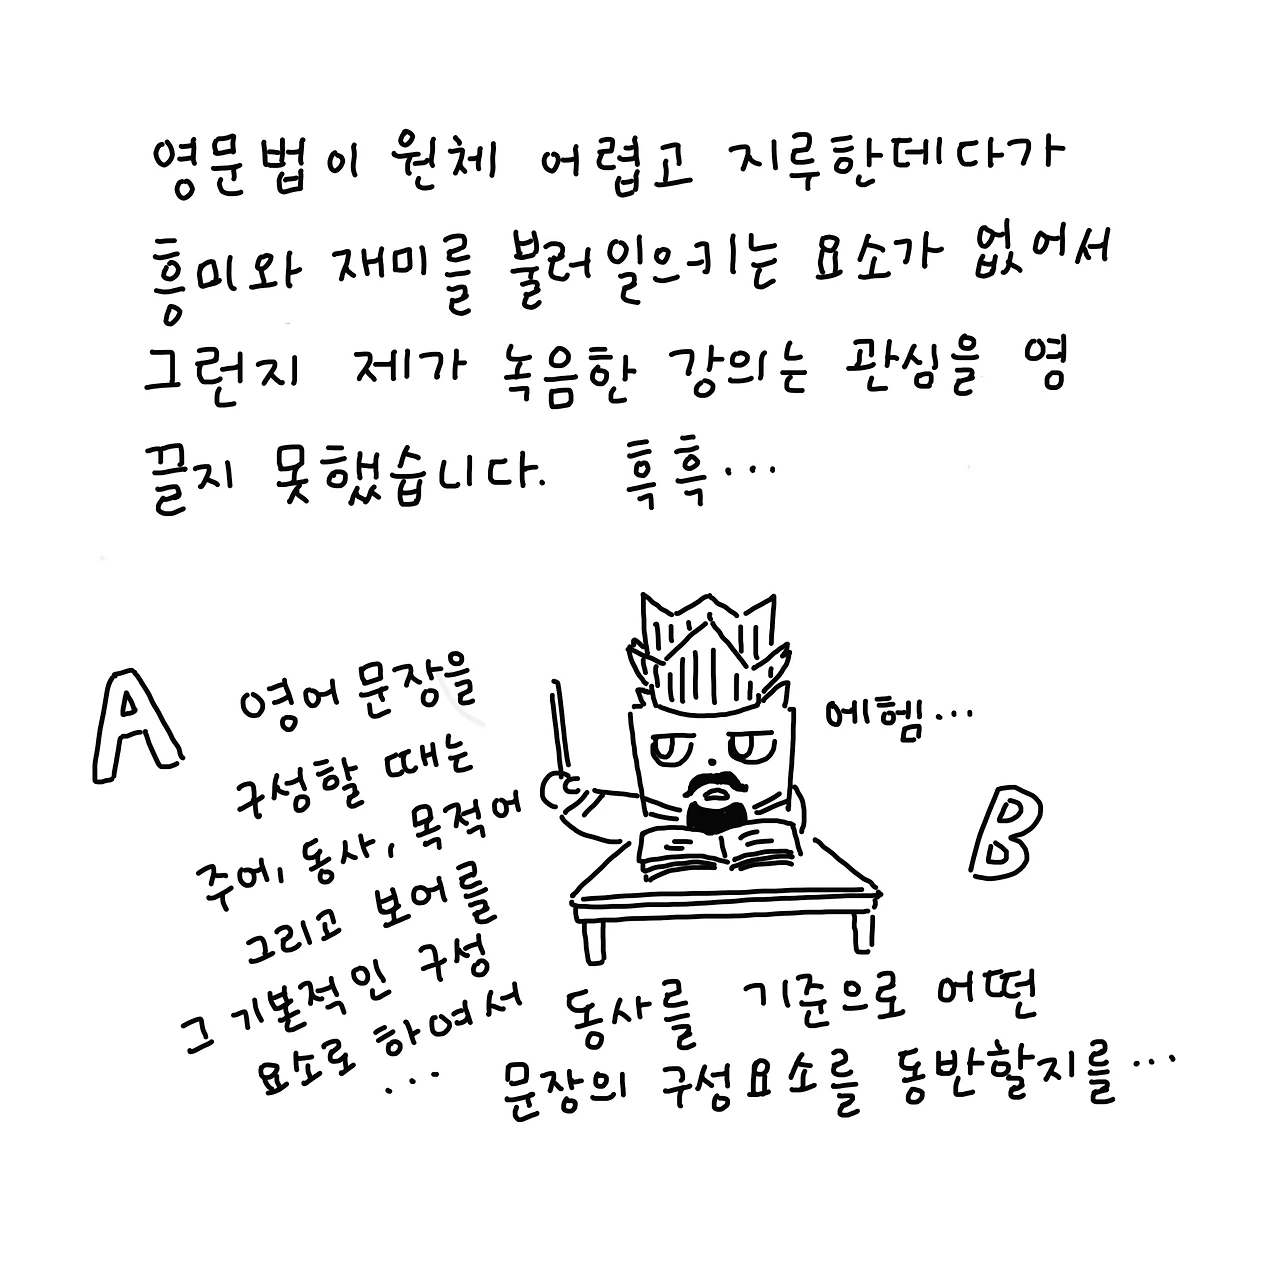 영문법이 원체 어렵고 지루한데다가
흥미와 재미를 불러일으키는 요소가 없어서
그런지 제가 녹음한 강의는 관심을 영
끌지 못했습니다. 흑흑...
A
영어 문장을
구성할 때는
주어, 동사, 목적어
그리고 보어를
그 기본적인 구성
요소로 하여서
...
에헴...
B
동사를 기준으로 어떤
문장의 구성요소를 동반할지를...